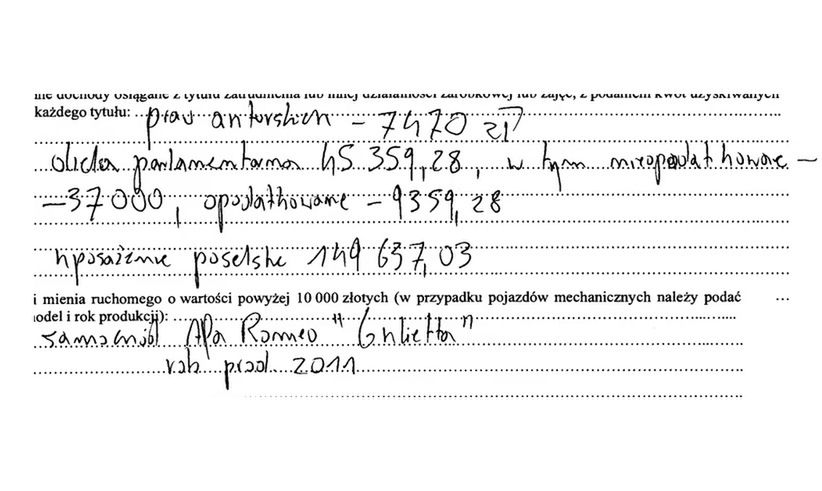 nne dochody osiągane z tytułu zatrudnienia lub innej działalności zarobkowej lub zajęć, z podaniem kwot uzyskiwanych
każdego tytułu: praw autorskich – 7470 zł
dieta parlamentarna 45 359,28, w tym nieopodatkowane –
– 37000, opodatkowane – 9359,28
uposażenie poselskie 149 637,03
i mienia ruchomego o wartości powyżej 10 000 złotych (w przypadku pojazdów mechanicznych należy podać
model i rok produkcji):
samochód Alfa Romeo "Giulietta"
rok prod. 2011